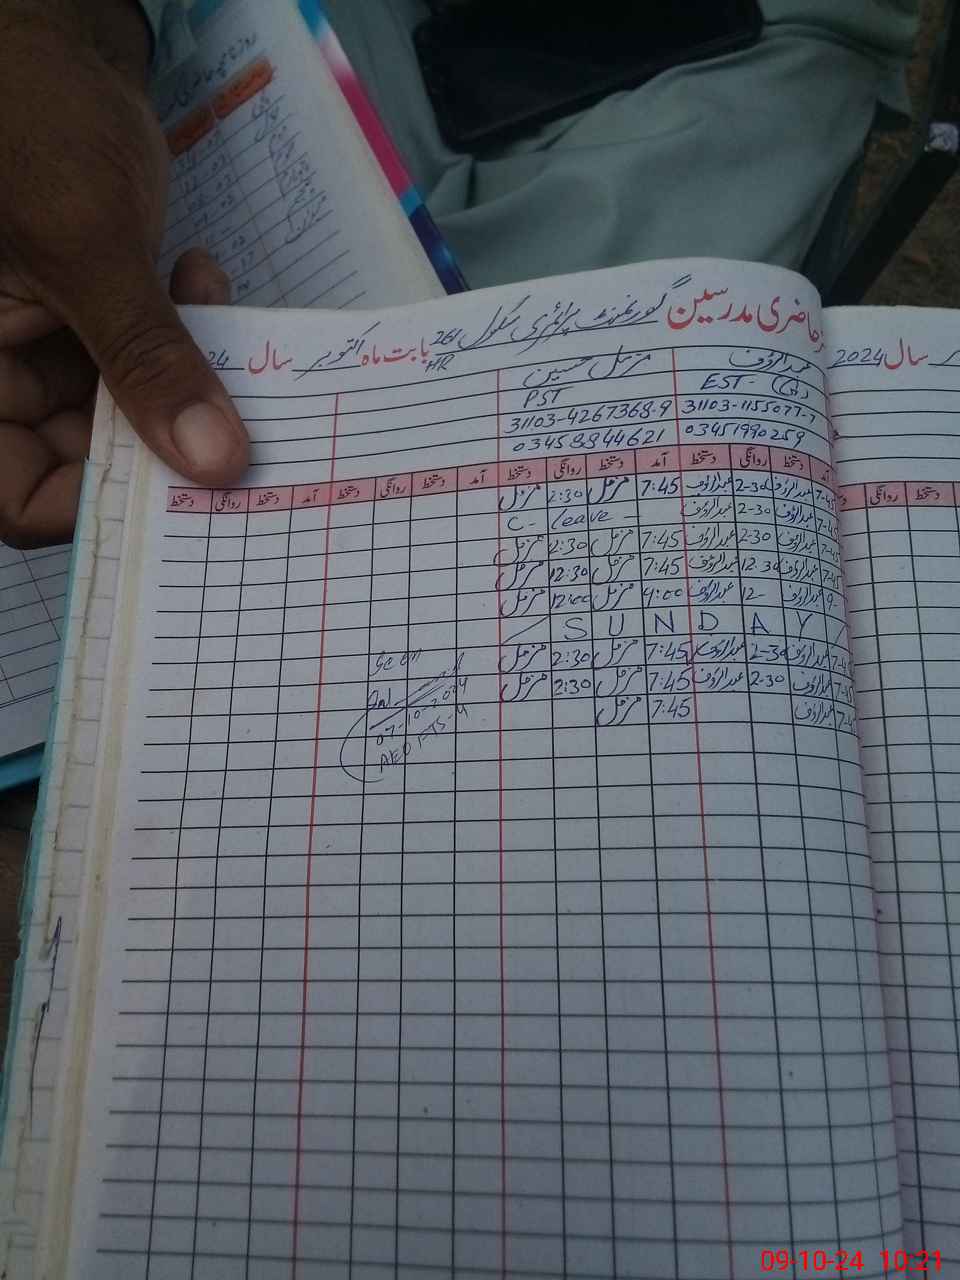 حاضری مدرسین گورنمنٹ پرائمری سکول 261 HR بابت ماہ اکتوبر سال 24
عبدالرؤف مزمل حسین
EST- PST
31103-1155077-7 31103-4267368-9
03451990259 03458844621
آمد دستخط روانگی دستخط آمد دستخط روانگی دستخط آمد دستخط روانگی دستخط آمد دستخط روانگی دستخط
7-45 عبدالرؤف 2-30 عبدالرؤف 7:45 مزمل 2:30 مزمل
7-45 عبدالرؤف 2-30 عبدالرؤف C- Leave -
7-45 عبدالرؤف 2-30 عبدالرؤف 7:45 مزمل 2:30 مزمل
7-45 عبدالرؤف 12-30 عبدالرؤف 7:45 مزمل 12:30 مزمل
9- عبدالرؤف 12- عبدالرؤف 9:00 مزمل 12:00 مزمل
S U N D A Y
7-45 عبدالرؤف 2-30 عبدالرؤف 7:45 مزمل 2:30 مزمل
7-45 عبدالرؤف 2-30 عبدالرؤف 7:45 مزمل 2:30 مزمل
7-45 عبدالرؤف 7:45 مزمل
Seen
07-10-2024
AEO
سال 2024
دستخط روانگی
روزنامچہ حاضری
09-10-24 10:21